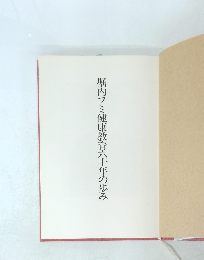 堀内フミ健康教室六十年の歩み